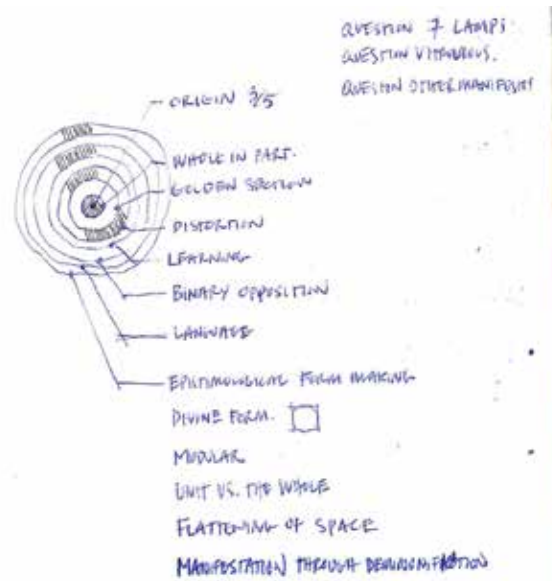 QUESTION 7 LAMPS.
QUESTION VITRUVIUS.
QUESTION OTHER MANIFESTOS
ORIGIN
WHOLE IN PART.
GOLDEN SECTION
DISTORTION
LEARNING
BINARY OPPOSITION
LANGUAGE
EPISTIMOLOGICAL FORM MAKING
DIVINE FORM.
MODULAR
UNIT VS. THE WHOLE
FLATTENING OF SPACE
MANIFESTATION THROUGH